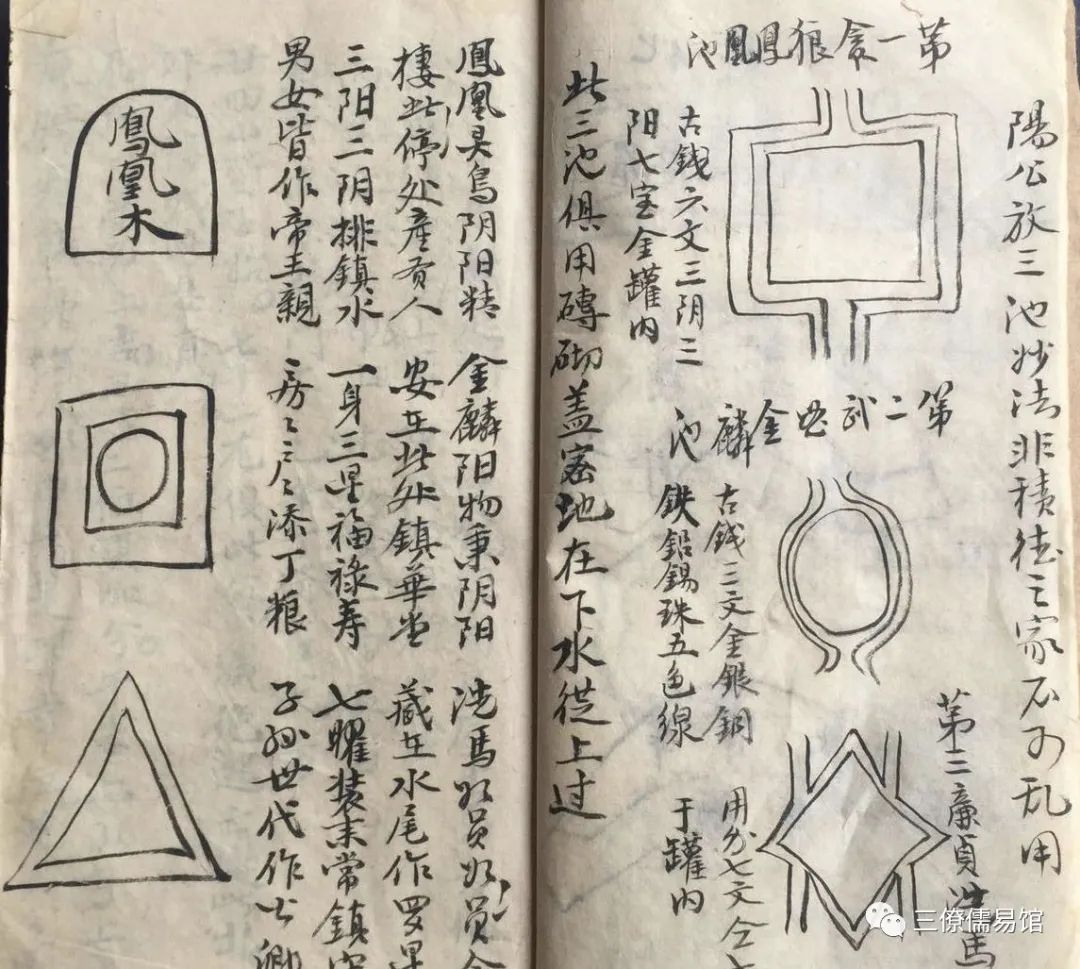 陽公放三池妙法非積德之家不可乱用
第一貪狼鳳凰池
古錢六文三阴三
阳七宝金罐内
第二武曲金麟池
古錢三文金銀銅
鉄鉛錫珠五色線
第三廉貞洗馬
用分七文仝七
于罐内
此三池俱用磚砌盖密地在下水從上过
鳳凰木
鳳凰灵鸟阴阳精
棲此停处產貴人
三阳三阴排鎮水
男女皆作帝王親
金麟阳物秉阴阳
安在此处鎮華堂
一身三星福祿寿
房々户户添丁粮
洗馬
藏在水尾作罗星
七曜装末常鎮
子孙世代作公卿
三僚儒易馆